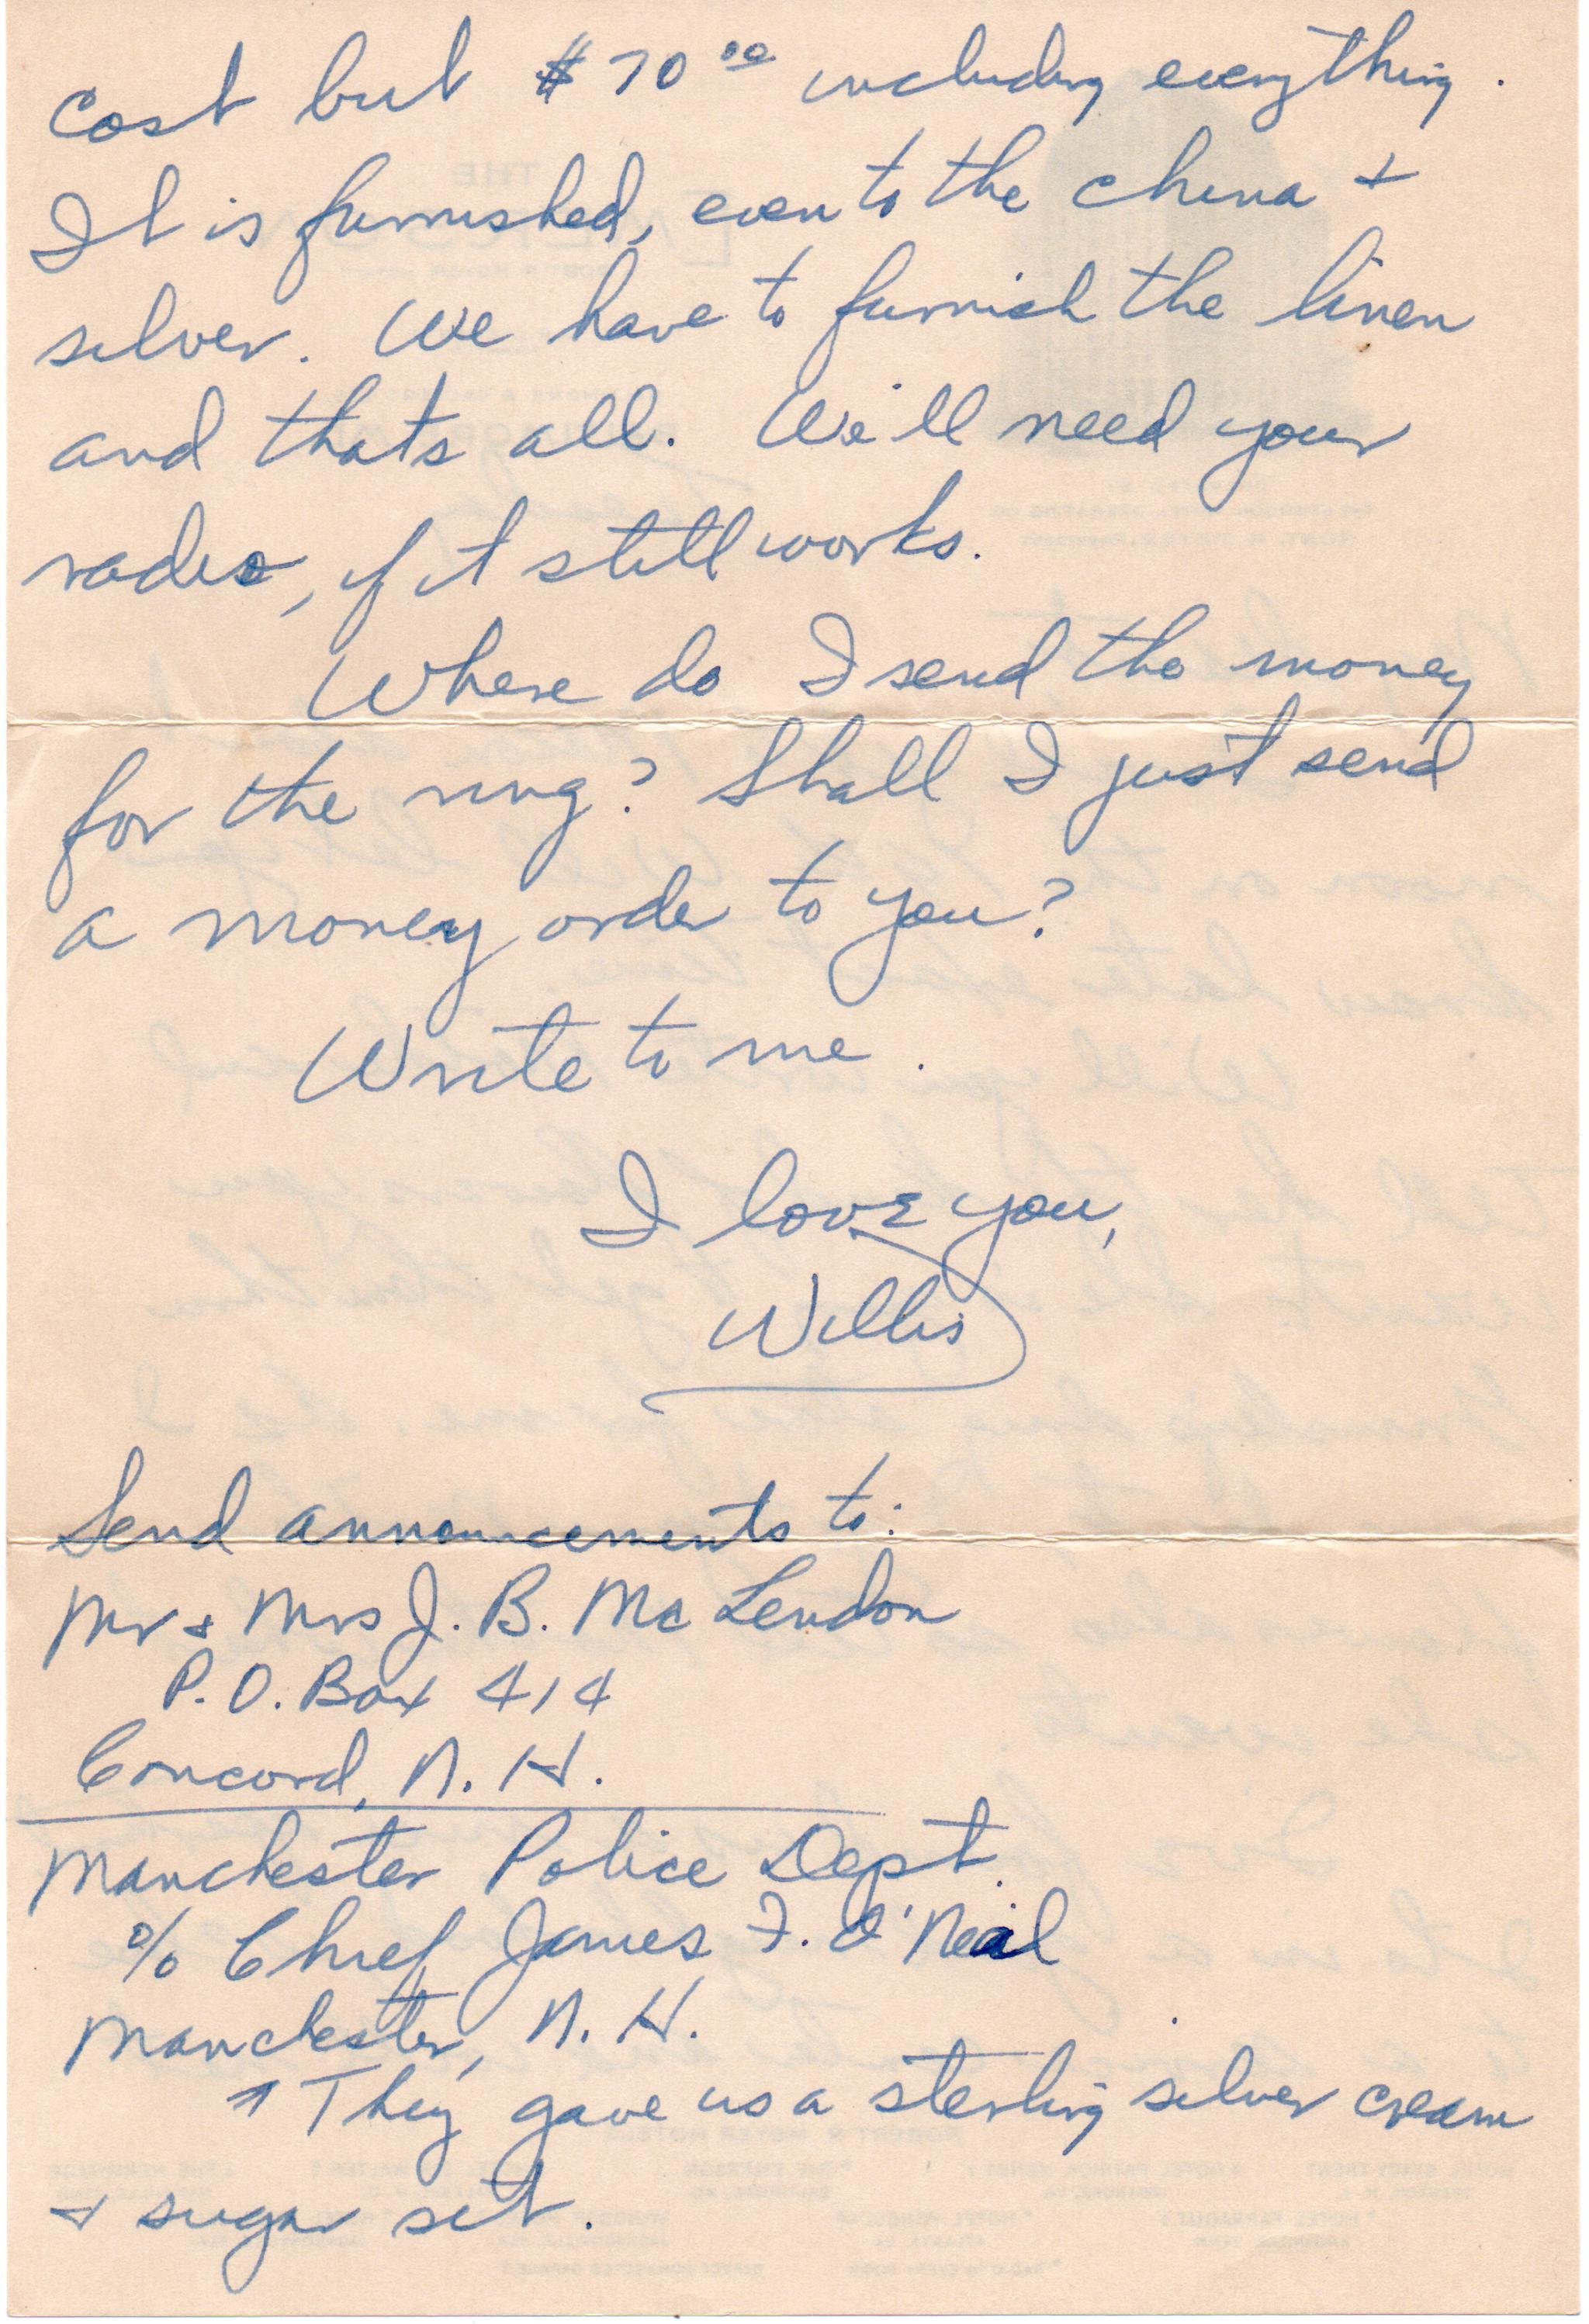 cost but $70.00 including everything.
It is furnished, even to the china +
silver. We have to furnish the linen
and thats all. We'll need your
radio, if it still works.
Where do I send the money
for the ring? Shall I just send
a money order to you?
Write to me.
I love you,
Willis
Send announcements to:
Mr + Mrs J. B. McLendon
P.O. Box 414
Concord, N. H.
Manchester Police Dept.
% Chief James F. O'Neal
Manchester, N. H.
↑ They gave us a sterling silver cream
+ sugar set.